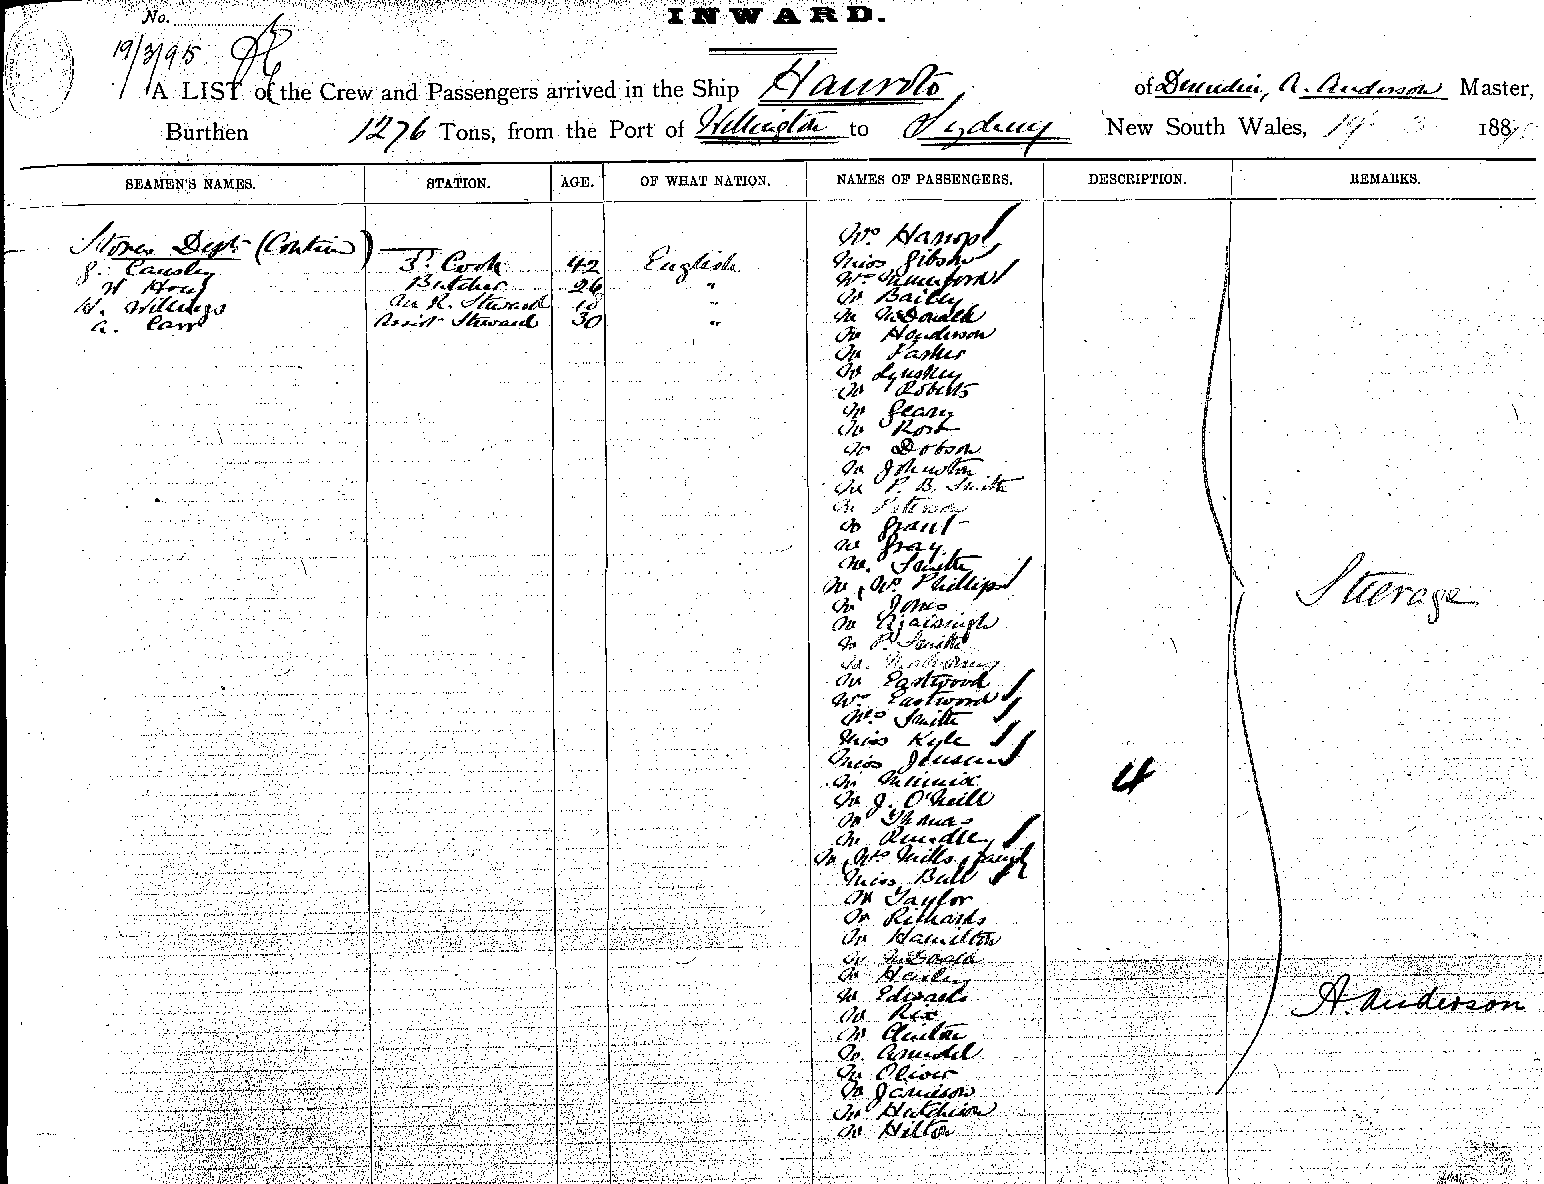 No.
INWARD.
19/3/95
A LIST of the Crew and Passengers arrived in the Ship Hauroto of Dunedin, A. Anderson Master,
Burthen 1276 Tons, from the Port of Wellington to Sydney New South Wales, 19 3 188
SEAMEN'S NAMES. STATION. AGE. OF WHAT NATION. NAMES OF PASSENGERS. DESCRIPTION. REMARKS.
Stores Dept (Contin)
J. Cansley 3r. Cook 42 English
Butcher 26 "
H. Willings Steward 18 "
A. Carr Assist Steward 30 "
Mrs Harrop
Miss Gibson
Mrs
Mr Bailey
Mr McDonald
Mr Henderson
Mr Parker
Mr Lynskey
Mr Roberts
Mr Geary
Mr Rose
Mr Dobson
Mr Johnston
Mr P. B. Smith
Mr
Mr Grant
Mr Gray
Mr. Smith
Mr, Mrs Phillips
Mr Jones
Mr
Mr P. Smith
Mr.
Mr Eastwood
Mrs Eastwood
Mrs Smith
Miss Kyle
Miss Jensen
Mr
Mr J. O'Neill
Mr Thomas
Mr Rundle
Mr, Mrs Mills, family
Miss Bull
Mr Taylor
Mr Richards
Mr Hamilton
Mr McDonald
Mr
Mr Edwards
Mr Rix
Mr Clinton
Mr. Arundel
Mr Oliver
Mr Jamieson
Mr Hutchison
Mr Hilton
4
Steerage
A. Anderson